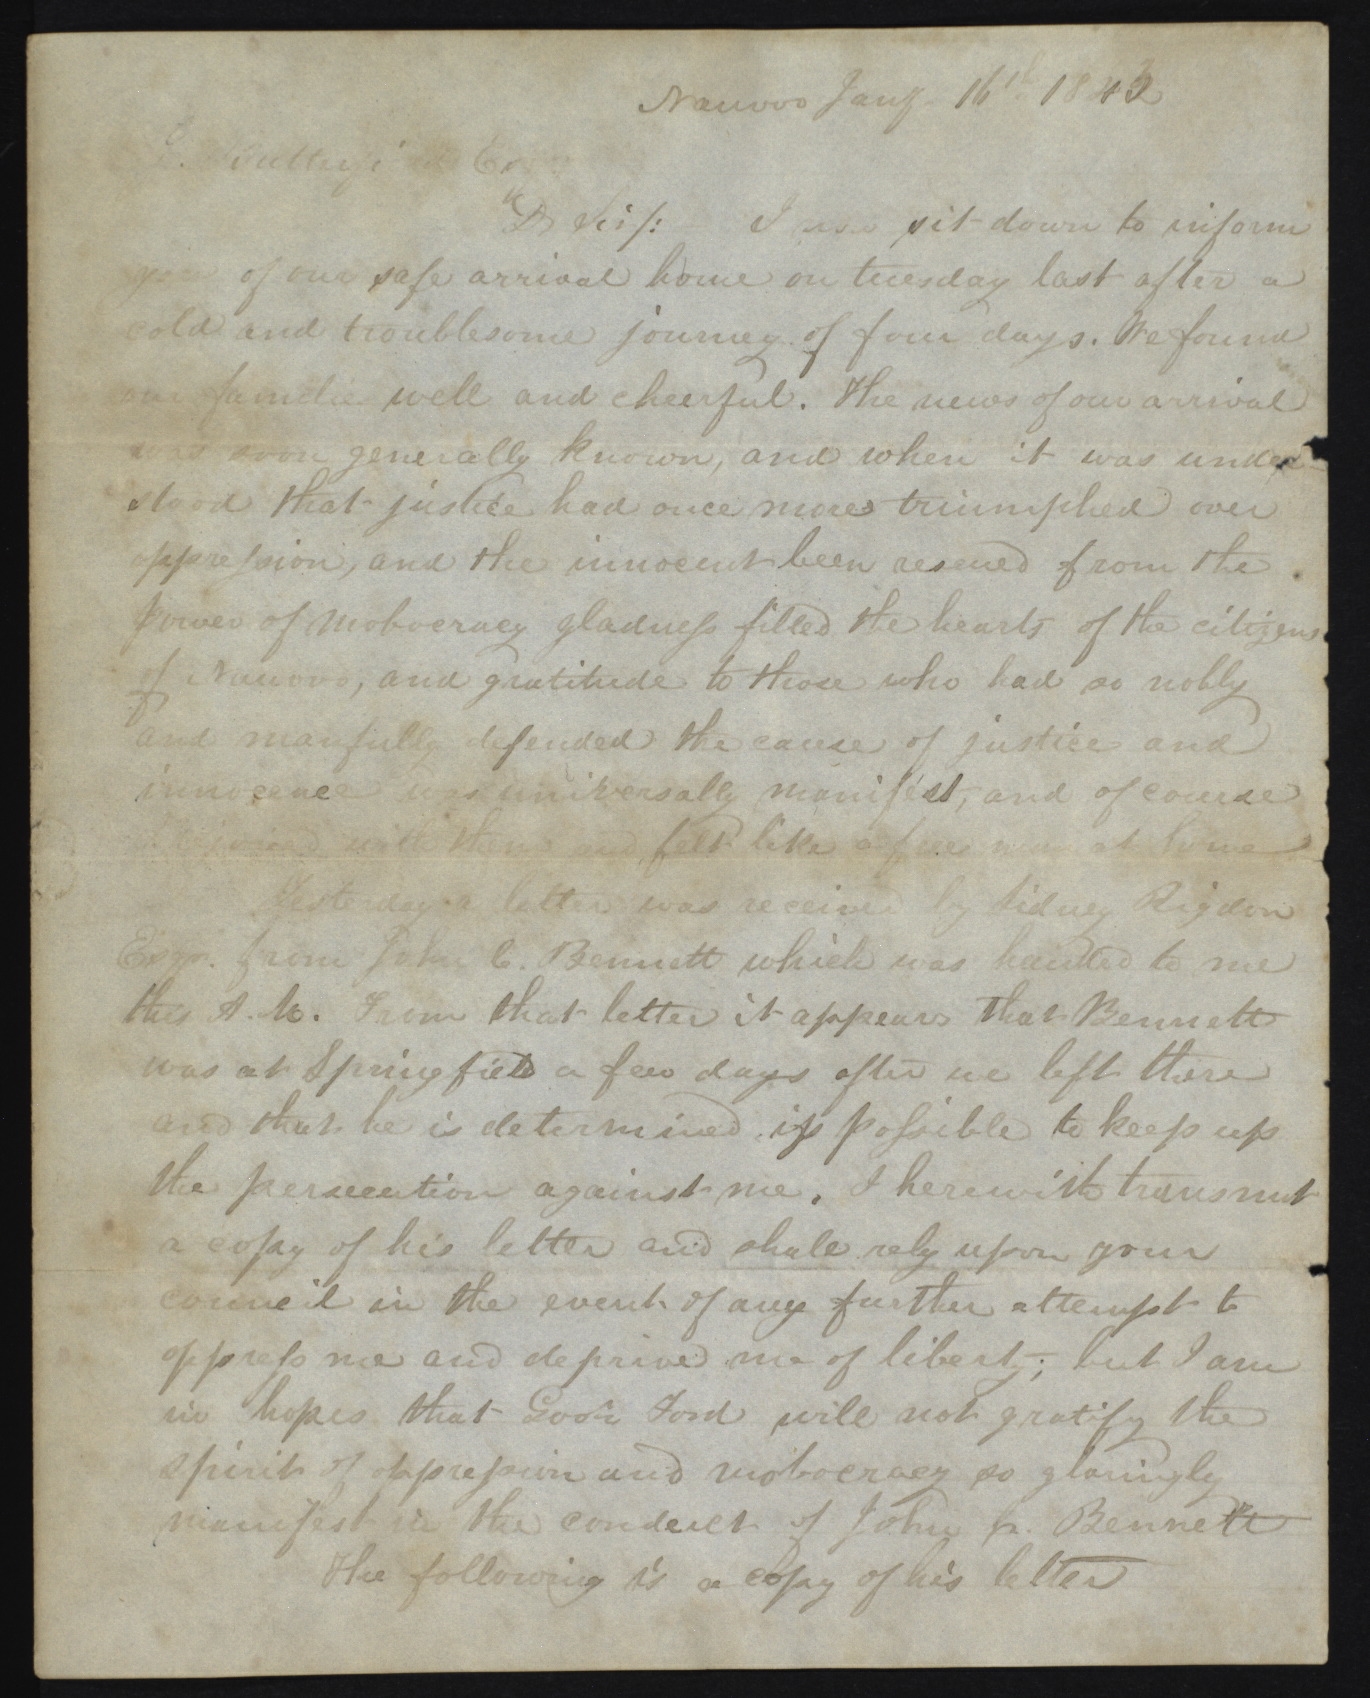 Nauvoo Jany 16th 1843
J. Butterfield Esqr.
Dr Sir/: I now sit down to inform
you of our safe arrival home on tuesday last after a
cold and troublesome journey of four days. We found
our familie well and cheerful. The news of our arrival
was soon generally known, and when it was under-
stood that justice had once more triumphed over
oppression, and the innocent been rescued from the
power of mobocracy gladness filled the hearts of the citizens
of Nauvoo, and gratitude to those who had so nobly
and manfully defended the cause of justice and
innocence was universally manifest, and of course
I rejoiced with them and felt like a free man at home
Yesterday a letter was received by Sidney Rigdon
Esqr. from John C. Bennett which was handed to me
this A.M. From that letter it appears that Bennett
was at Springfield a few days after we left there
and that he is determined if possible to keep up
the persecution against me. I herewith transmit
a copy of his letter and shall rely upon your
council in the event of any further attempt to
oppress me and deprive me of liberty; but I am
in hopes that Govr. Ford will not gratify the
spirit of oppression and mobocracy so glaringly
manifest in the conduct of John C. Bennett
The following is a copy of his letter